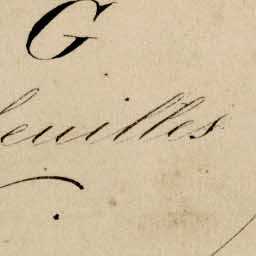 G
feuilles